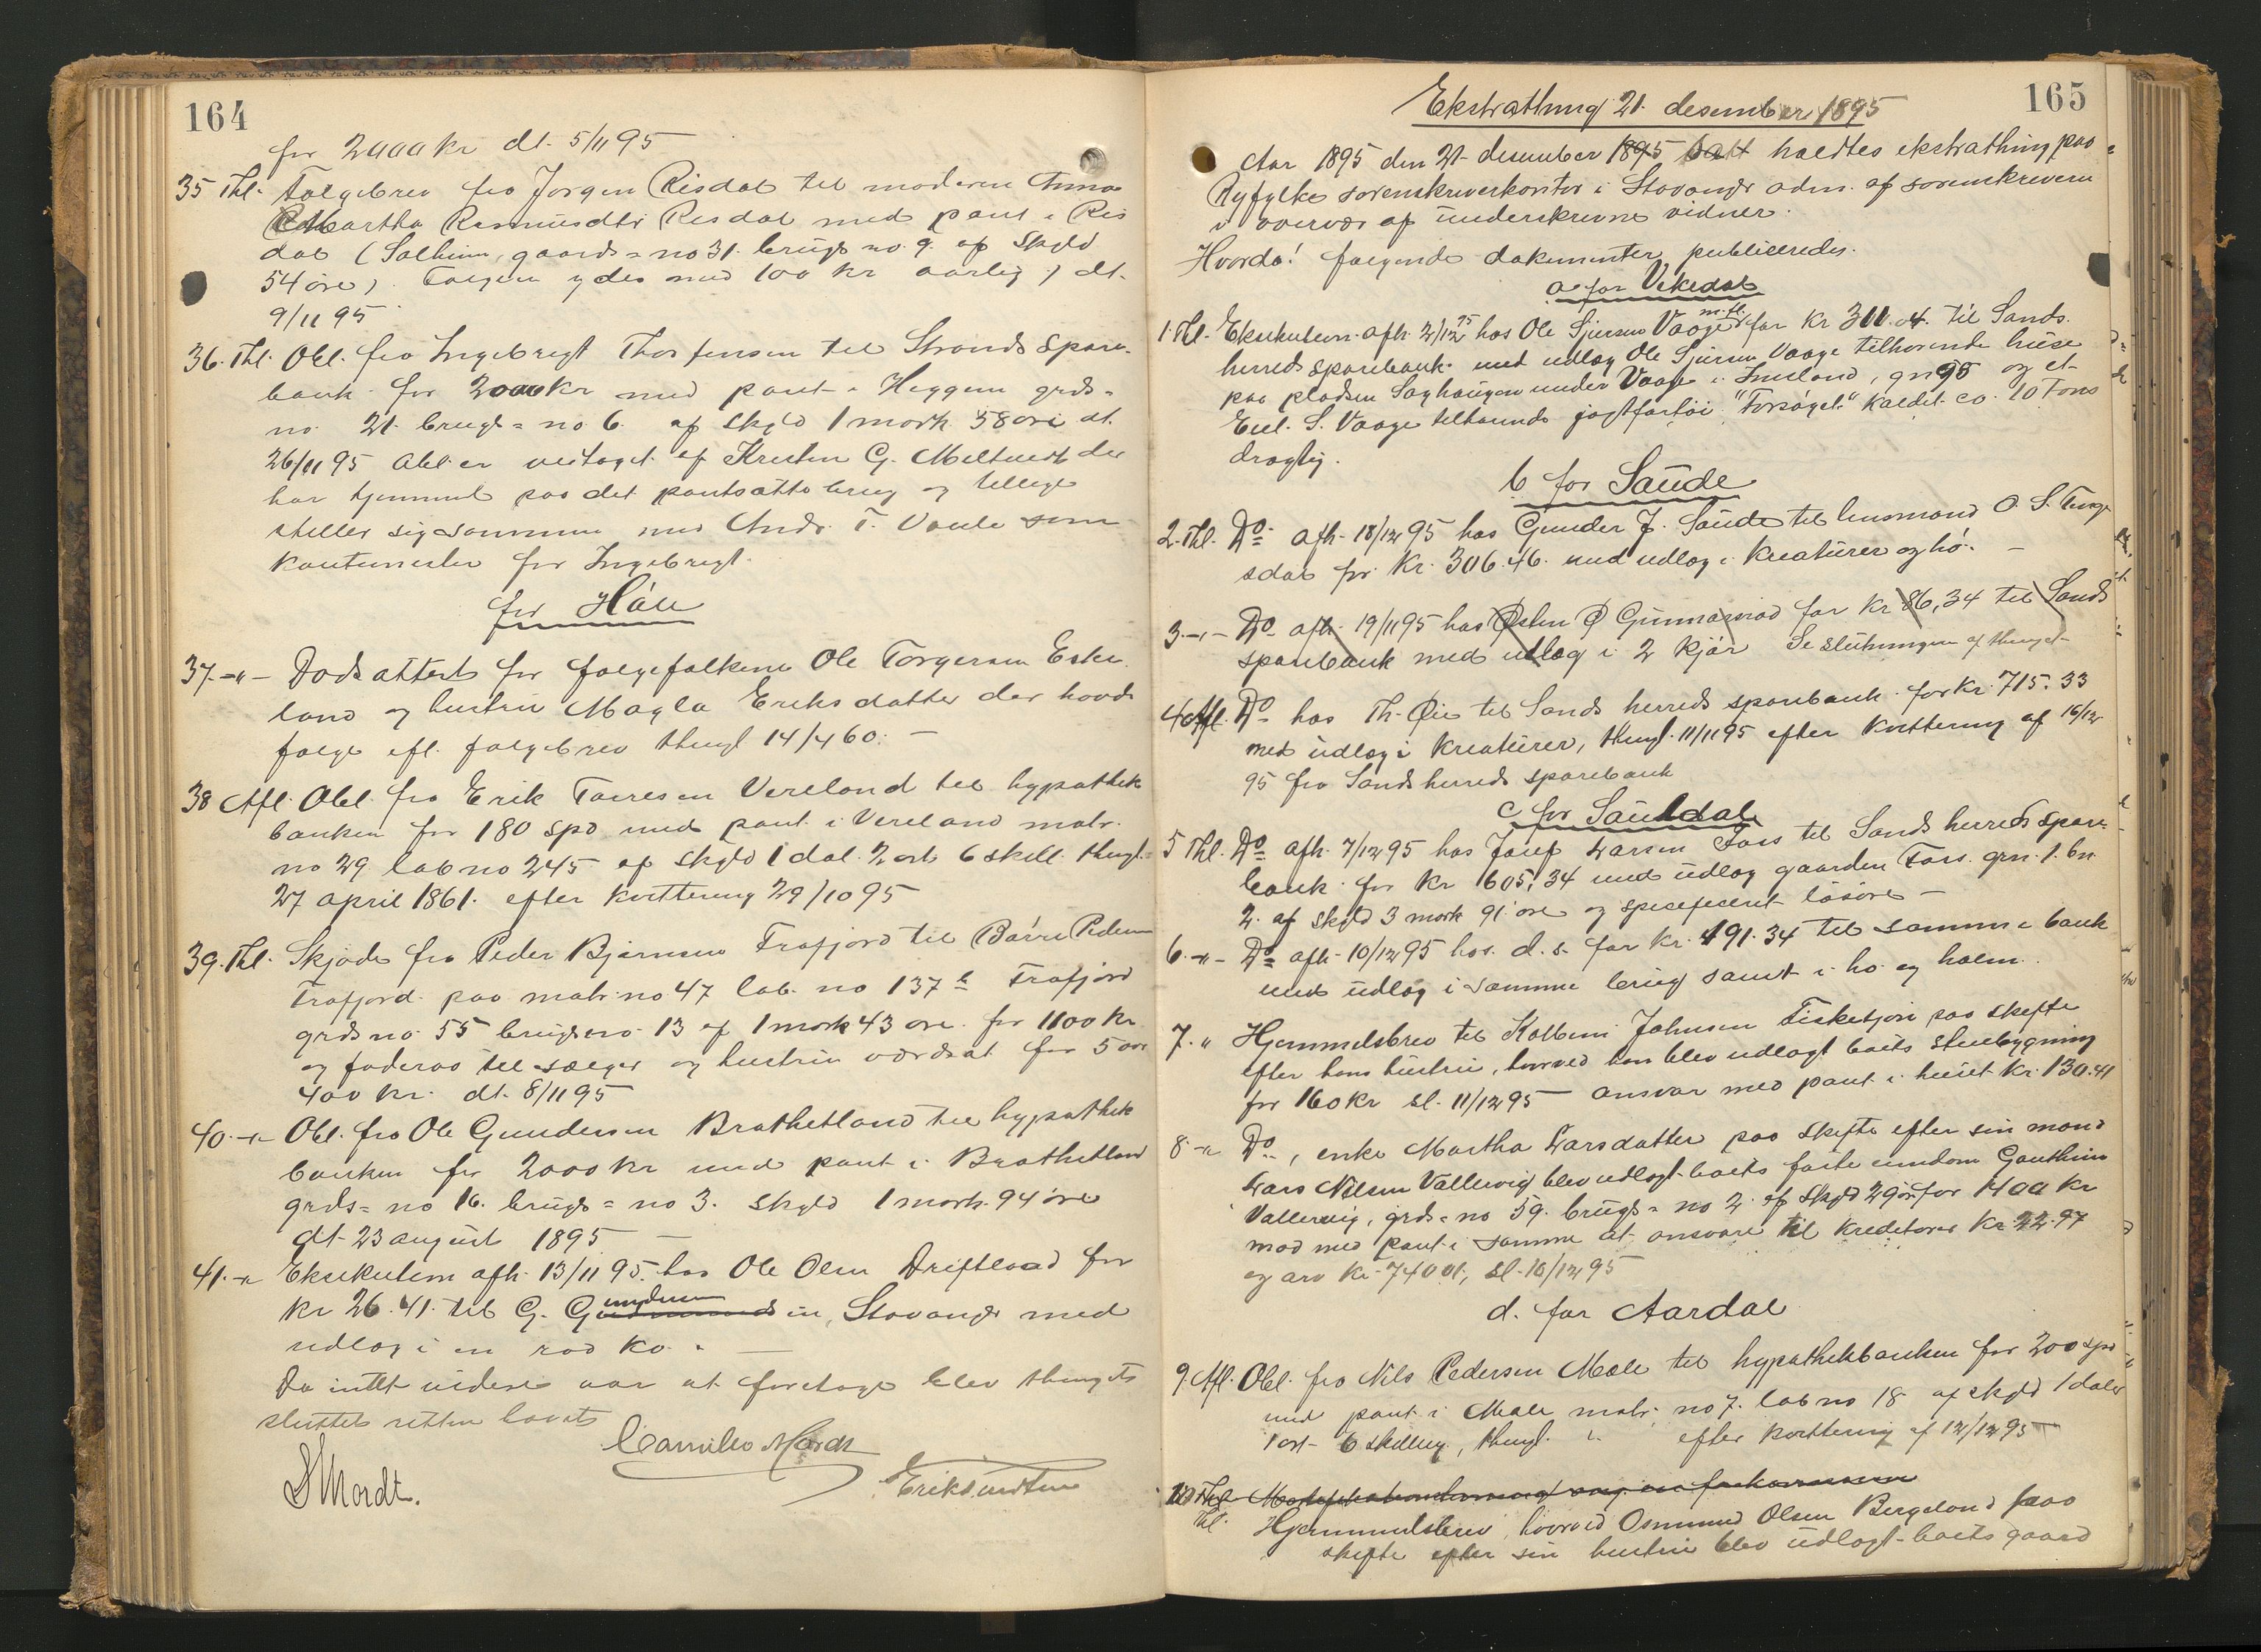 164
for 2000 kr dt. 5/11 95
35 Thl. Følgebrev fra Jørgen Risdal til moderen Anna
Martha Rasmusdtr Risdal med pant i Ris
dal (Solheim, gaards= no 31. brugs no. 9. af Skyld
54 øre). Følgen ydes med 100 kr aarlig, dt.
9/11 95
36. Thl. Obl. fra Ingebrigt Thorfensen til Strands Spare-
bank for 2000 kr med pant i Heggem grds=
no. 21. brugs= no 6. af Skyld 1 mark 58 øre dt.
26/11 95 Obl. er vedtaget af Kristen G. Meltveit der
har hjemmel paa det pantsatte brug og tillige
stiller sig sammen med Andr. T. Vaule som
kautionister for Ingebrigt.
for Høle
37.-"- Dødsattest for følgefolkene Ole Torgersen Eske
land og hustru Magla Eriksdatter der havde
følge efl. følgebrev thingl 14/4 60. -
38 Afl. Obl. fra Erik Tørresen Vereland til hypothek
banken for 180 spd med pant i Vereland matr.
no 29 lab no 245 af skyld 1 dal. 2 ort 6 skill. thingl.
27 april 1861. efter kvittering 29/10 95
39. Thl. Skjøde fra Peder Bjørnsen Frafjord til Børre Pedersen
Frafjord paa matr. no 47 lab. no 137 b Frafjord
grds no. 55 brugs no. 13 af 1 mark 43 øre for 1100 kr.
og føderaad til sælger og hustru værdsat for 5 aar
400 kr. dt. 8/11 95
40.-"- Obl. fra Ole Gundersen Brathetland til hypothek
banken for 2000 kr med pant i Brathetland
grds= no 16. brugs= no 3. skyld 1 mark. 94 øre
dt 23 august 1895 -
41.-"- Eksekution afh. 13/11 95. hos Ole Olsen Drifteland for
kr 26.41. til G. Gundersen, Stavanger med
udlæg i en rød ko. -
Da intet videre var at foretage blev thinget
sluttet retten hævet
Camilla Mordt
S Mordt.
Erik Knudsen
165
Ekstrathing 21. desember 1895
Aar 1895 den 21. desember 1895 holdtes ekstrathing paa
Ryfylke sorenskriverkontor i Stavanger adm. af sorenskriveren
i overvær af underskrevne vidner.
Hvorda! følgende dokumenter publiceredes.
a for Vikedal
1. Thl. Eksekution afh. 2/12 95 hos Ole Sjursen Vaage m.fl. for kr 311.04. til Sands
herreds sparebank med udlæg Ole Sjursen Vaage tilhørende huse
paa pladsen Saghaugen under Vaage i Imsland, gn 95 og et
Eul. S. Vaage tilhørende jagtfartøi "Forsøget" kaldet ca. 10 Tons
drægtig.
b for Saude
2. Thl. Do. afh. 18/12 95 hos Gunder J. Saude til lensmand O. S. Tenge
sdal for kr. 306.46. med udlæg i kreaturer og hø. -
3.-"- Do afh. 19/11 95 hos Østen Ø Gunnarsrød for kr 86,34 til Sands
sparebank med udlæg i 2 kjør Se slutningen af thinget
4 Afl. Do hos Th. Øie til Sands herreds sparebank for kr. 715.33
med udlæg i kreaturer, thingl. 11/11 95 efter kvittering af 16/12
95 fra Sands herreds sparebank
c for Sauldal
5 Thl. Do afh. 7/12 95 hos Josef Larsen Foss til Sands herreds spare=
bank for kr 1605,34 med udlæg gaarden Foss. grn. 1. bn.
2. af skyld 3 mark 91 øre og specificeret løsøre -
6.-"- Do afh. 10/12 95 hos d. s. for kr. 491.34 til samme bank
med udlæg i samme brug samt i hø og halm.
7." Hjemmelsbrev til Kolbein Johnsen Fisketjøn paa skifte
efter hans hustru, hvorved han blev udlagt boets stuebygning
for 160 kr sl. 11/12 95 ansvar med pant i huset kr. 130.41
8-"- Do, enke Martha Larsdatter paa skifte efter sin mand
Lars Nilsen Vallevig blev udlagt boets faste eiendom Gautheim
Vallevig, grds= no 59. brugs= no 2. af skyld 29 øre for 1400 kr
mod med pant i samme at ansvare til kreditorer kr. 22.97
og arv kr. 740 01, sl. 10/12 95
d. for Aardal
9. Afl. Obl. fra Nils Pedersen Mæle til hypothekbanken for 200 spd
med pant i Mæle matr. no 7. lab no 18 af skyld 1 daler
1 ort 6 skilling, thingl. efter kvittering af 12/12 95
10 Thl.
Thl. Hjemmelsbrev, hvorved Osmund Olsen Bergeland paa
skifte efter sin hustru blev udlagt boets gaard